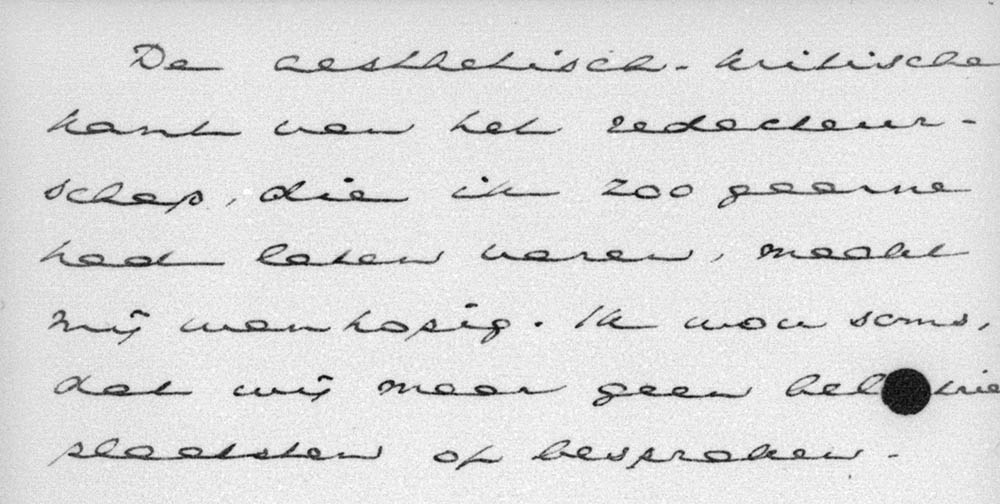 De aesthetisch-kritische
kant van het redacteur-
schap, die ik zoo gaarne
had laten varen, maakt
mij wanhopig. Ik wou soms,
dat wij maar geen
plaatsten of bespraken.